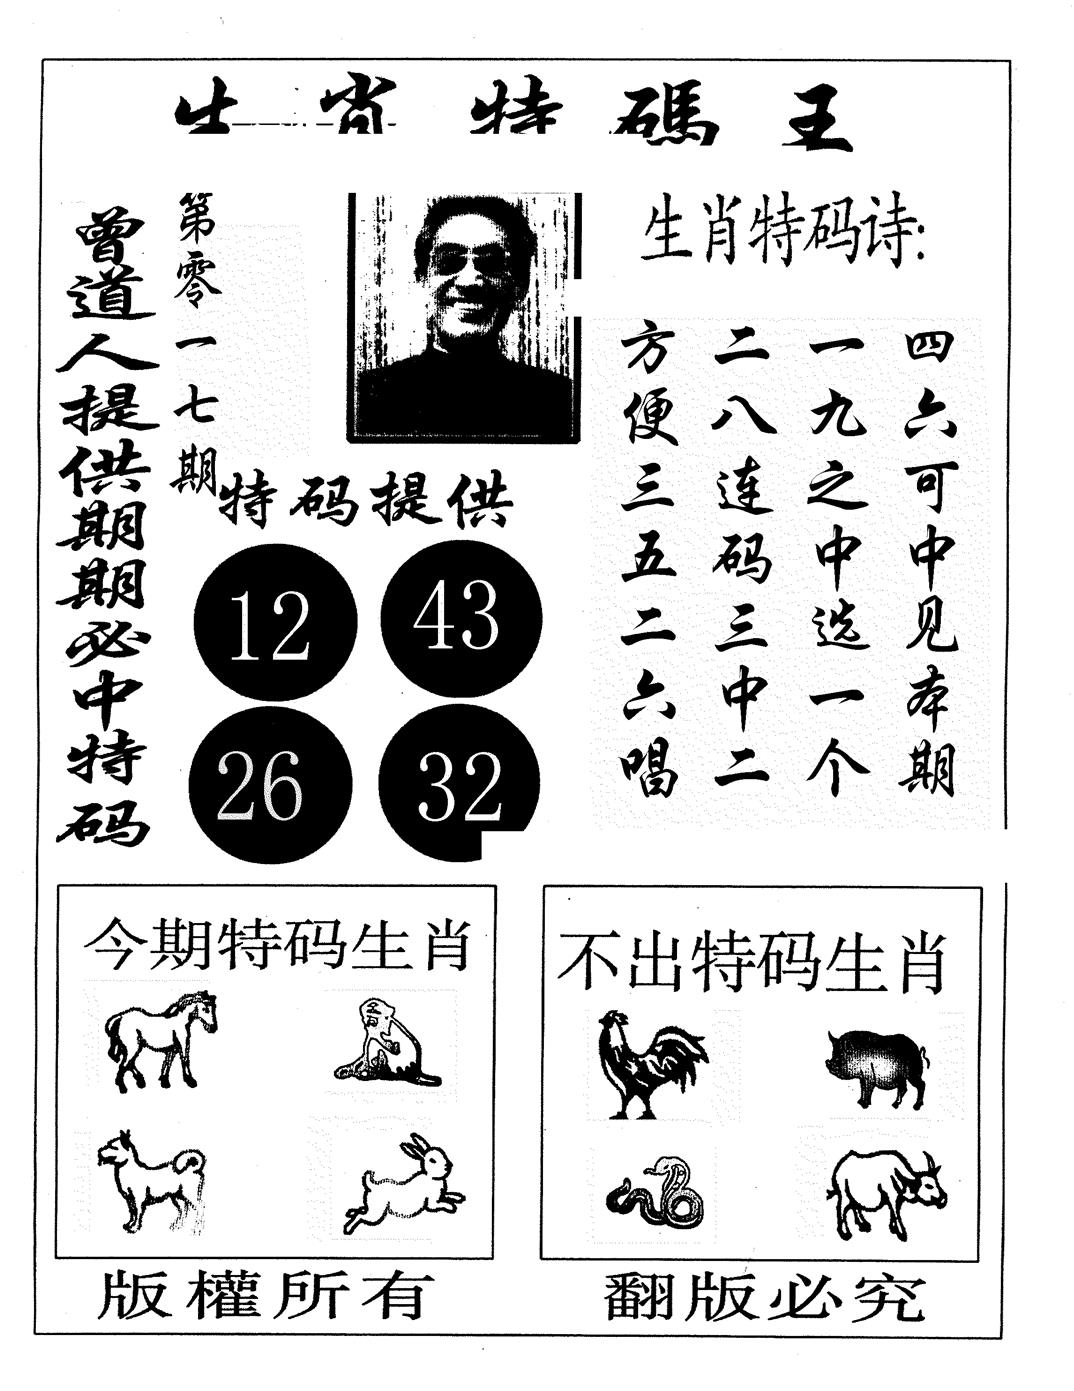 生肖特碼王
曾道人提供期期必中特码
第零一七期
特码提供
12 43
26 32
生肖特码诗:
四六可中见本期
一九之中选一个
二八连码三中二
方便三五二六唱
今期特码生肖
不出特码生肖
版權所有
翻版必究